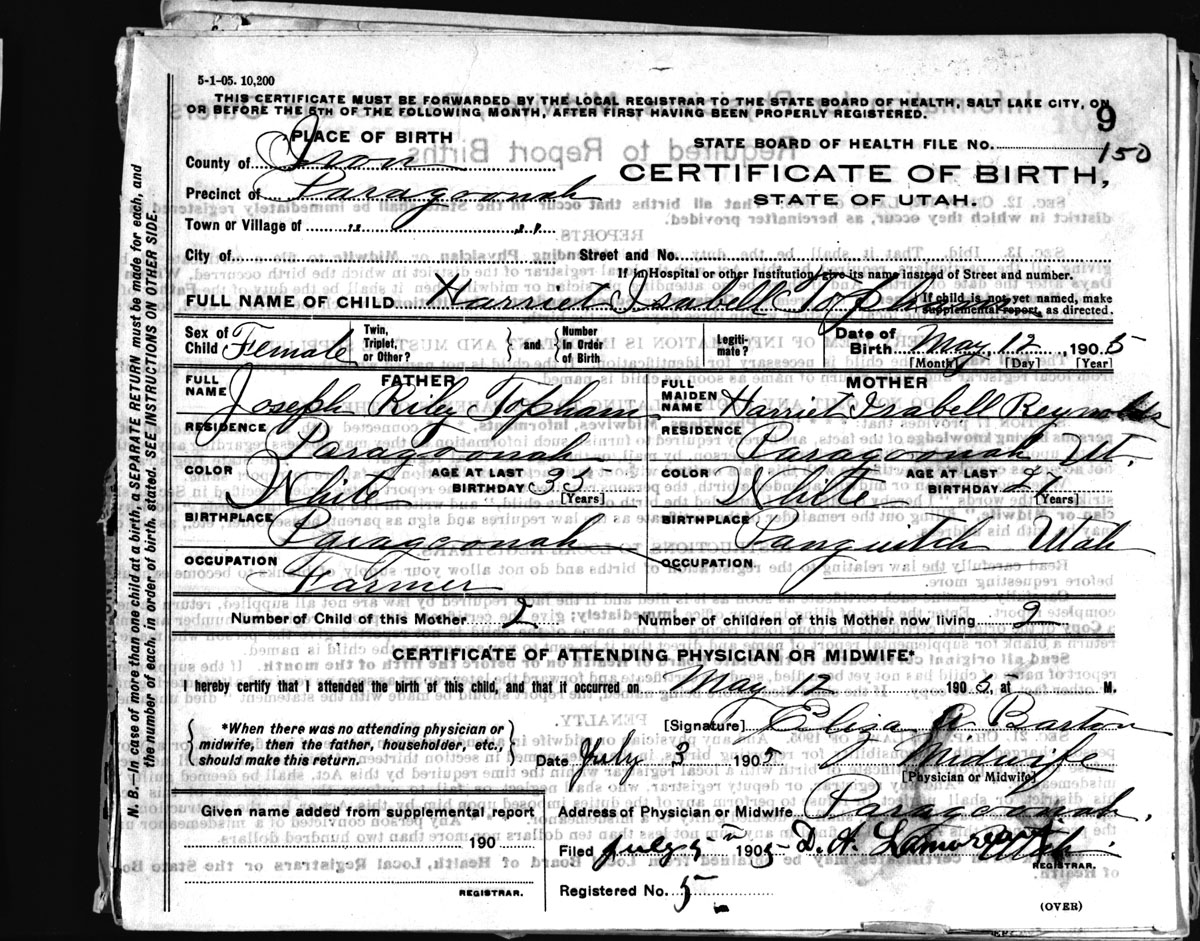 5-1-05. 10,200
THIS CERTIFICATE MUST BE FORWARDED BY THE LOCAL REGISTRAR TO THE STATE BOARD OF HEALTH, SALT LAKE CITY, ON
OR BEFORE THE 5TH OF THE FOLLOWING MONTH, AFTER FIRST HAVING BEEN PROPERLY REGISTERED.
9
PLACE OF BIRTH
STATE BOARD OF HEALTH FILE NO. 150
County of Iron
CERTIFICATE OF BIRTH,
Precinct of Paragoonah
STATE OF UTAH.
Town or Village of " "
City of Street and No.
If in Hospital or other Institution give its name instead of Street and number.
FULL NAME OF CHILD Harriet Isabell Topham
If child is not yet named, make
supplemental report, as directed.
Sex of Child Female Twin, Triplet, or Other? } and { Number in Order of Birth Legiti-mate? Date of Birth May 12, 1905
[Month] [Day] [Year]
FATHER
MOTHER
FULL NAME Joseph Riley Topham
FULL MAIDEN NAME Harriet Isabell Reynolds
RESIDENCE Paragoonah
RESIDENCE Paragoonah Ut.
COLOR White AGE AT LAST BIRTHDAY 35 [Years]
COLOR White AGE AT LAST BIRTHDAY [Years]
BIRTHPLACE Paragoonah
BIRTHPLACE Panguitch Utah
OCCUPATION Farmer
OCCUPATION
Number of Child of this Mother 2 Number of children of this Mother now living 2
CERTIFICATE OF ATTENDING PHYSICIAN OR MIDWIFE*
I hereby certify that I attended the birth of this child, and that it occurred on May 12 1905, at M.
*When there was no attending physician or
midwife, then the father, householder, etc.,
should make this return.
[Signature] Eliza A Barton
Date July 3 1905 Midwife
[Physician or Midwife]
Given name added from supplemental report
190
REGISTRAR.
Address of Physician or Midwife Paragoonah,
Utah
Filed July 5 1905 D. A.
REGISTRAR.
Registered No. 5
(OVER)
N. B.—In case of more than one child at a birth, a SEPARATE RETURN must be made for each, and
the number of each, in order of birth, stated. SEE INSTRUCTIONS ON OTHER SIDE.